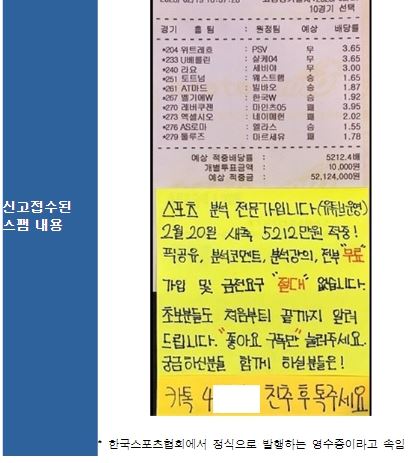 신고접수된
스팸 내용
10경기 선택
경기 홈팀 : 원정팀 예상 배당률
*204 위트레흐 : PSV 무 3.65
*233 U베를린 : 샬케04 무 3.65
*240 라요 : 세비야 무 3.00
*251 토트넘 : 웨스트햄 승 1.65
*261 AT마드 : 빌바오 승 1.87
*267 벨기에W : 한국W 승 1.92
*270 레버쿠젠 : 마인츠05 패 3.95
*273 엑셀시오 : 네이메헌 패 2.02
*276 AS로마 : 엘라스 승 1.55
*279 툴루즈 : 마르세유 패 1.78
예상 적중배당률 : 5212.4배
개별투표금액 : 10,000원
예상 적중금 : 52,124,000원
스포츠 분석 전문가입니다
2월 20일 새축 5212만원 적중!
픽공유, 분석코멘트, 분석강의, 전부 "무료"
가입 및 금전요구 "절대" 없습니다.
초보분들도 처음부터 끝까지 알려
드립니다. "좋아요 구독만" 눌러주세요.
궁금하신분들 함께 하실분들은!
카톡 4 친추 후 톡주세요
* 한국스포츠협회에서 정식으로 발행하는 영수증이라고 속임